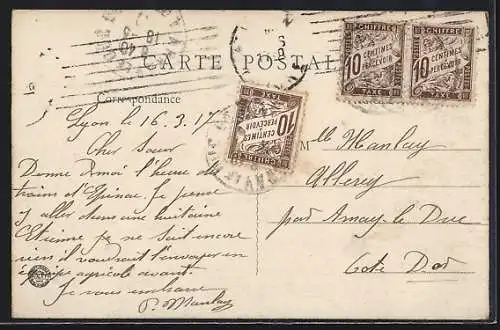 CARTE POSTALE
Correspondance
Lyon le 16.3.17
Cher Sœur
Donne moi l'heure des
trains d'Epinac. Je pense
y aller dans une huitaine
Etienne ne sait encore
rien il voudrait l'envoyer en
équipe agricole avant.
Je vous embrasse
P. Manlay
CHIFFRE
10 CENTIMES
À PERCEVOIR
TAXE
CHIFFRE
10 CENTIMES
À PERCEVOIR
TAXE
CHIFFRE
10 CENTIMES
À PERCEVOIR
TAXE
Mlle Manlay
Allerey
par Arnay le Duc
Cote D'or